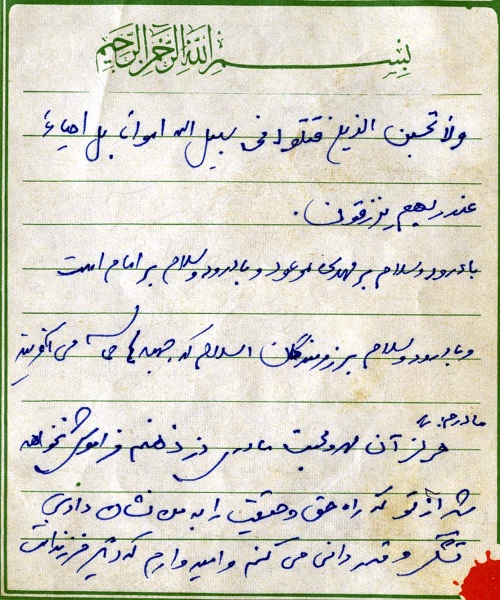 بسم الله الرحمن الرحیم
ولا تحسبن الذین قتلوا فی سبیل الله امواتا بل احیاء
عند ربهم یرزقون.
با درود و سلام بر مهدی موعود و با درود و سلام بر امام امت
و با درود و سلام بر رزمندگان اسلام که جبهه ها حماسه می آفرینند
مادرم:
هرگز آن مهر و محبت مادری در ذهنم فراموش نخواهد
شد از تو که راه حق و حقیقت را به من نشان دادی
تشکر و قدردانی می کنم و امیدوارم که دیگر فرزندانت